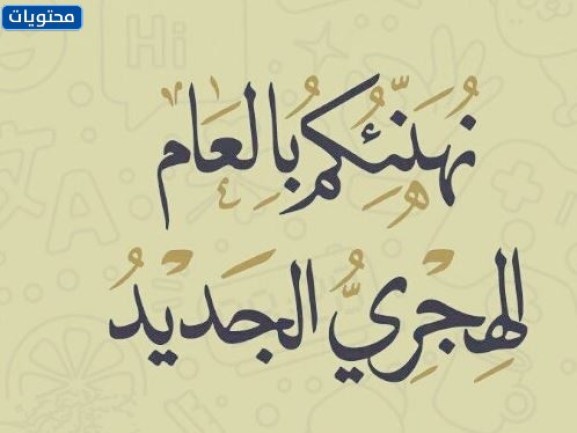 محتويات
Hi
نُهَنِّئُكُمْ بِالعَام
الهِجْرِيُّ الجَدْيدُ
A